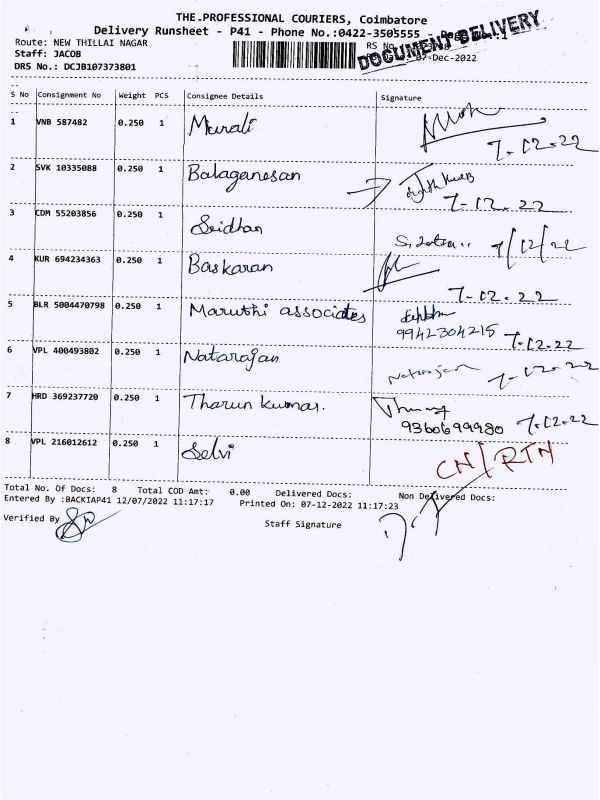 THE.PROFESSIONAL COURIERS, Coimbatore
Delivery Runsheet - P41 - Phone No.:0422-3505555 -
DOCUMENT DELIVERY
Route: NEW THILLAI NAGAR
Staff: JACOB
RS No
DRS No.: DCJB107373801
07-Dec-2022
S No Consignment No Weight PCS Consignee Details Signature
1 VNB 587482 0.250 1 Murali 7-12-22
2 SVK 10335088 0.250 1 Balaganesan 7-12-22
3 CDM 55203856 0.250 1 Sridhar 7/12/22
4 KUR 694234363 0.250 1 Baskaran 7-12-22
5 BLR 5004470798 0.250 1 Maruthi associates 9942304215 7-12-22
6 VPL 400493802 0.250 1 Natarajan Natarajan 7-12-22
7 HRD 369237720 0.250 1 Tharun kumar. 9360699980 7-12-22
8 VPL 216012612 0.250 1 Selvi CN/RTN
Total No. Of Docs: 8 Total COD Amt: 0.00 Delivered Docs: Non Delivered Docs:
Entered By :BACKIAP41 12/07/2022 11:17:17 Printed On: 07-12-2022 11:17:23
Verified By
Staff Signature